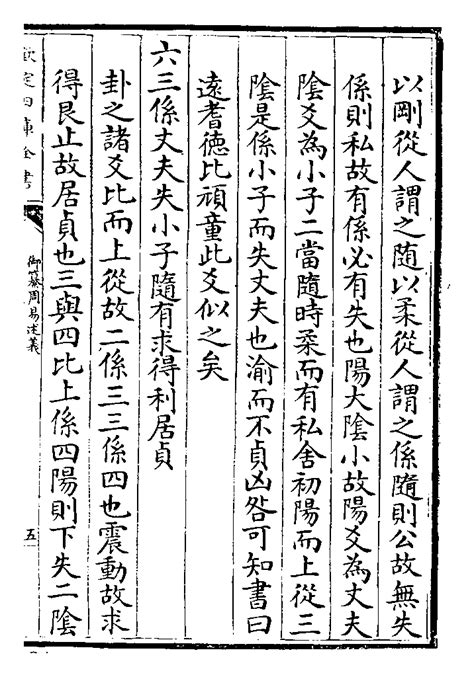 以剛從人謂之随以柔從人謂之係隨則公故無失
係則私故有係必有失也陽大陰小故陽爻為丈夫
陰爻為小子二當隨時柔而有私舍初陽而上從三
陰是係小子而失丈夫也渝而不貞凶咎可知書曰
遠耆德比頑童此爻似之矣
六三係丈夫失小子隨有求得利居貞
卦之諸爻比而上從故二係三三係四也震動故求
得艮止故居貞也三與四比上係四陽則下失二陰
欽定四庫全書
御纂周易述義
五